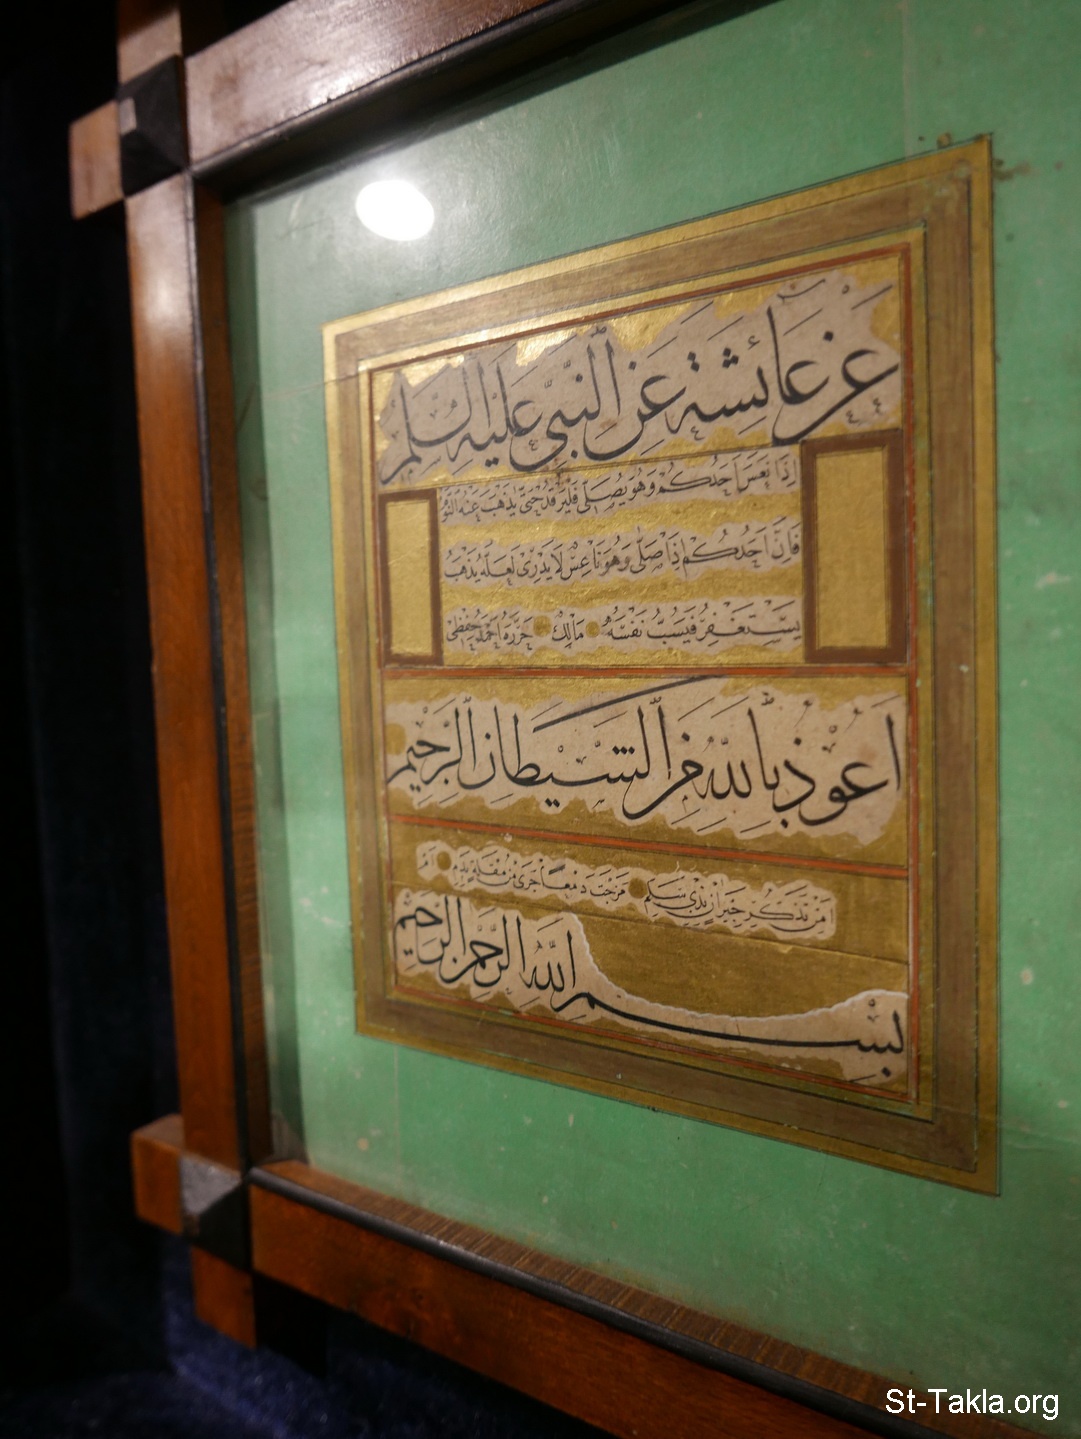 عن عائشة عن النبي عليه السلم
إذا نعس أحدكم وهو يصلي فليرقد حتى يذهب عنه النوم
فإن أحدكم إذا صلى وهو ناعس لا يدري لعله يذهب
يستغفر فيسب نفسه مالك حرره أحمد حفظي
اعوذ بالله من الشيطان الرجيم
امن تذكر جيران بذي سلم مزجت دمعا جرى من مقلة بدم ام
بسم الله الرحمن الرحيم
St-Takla.org